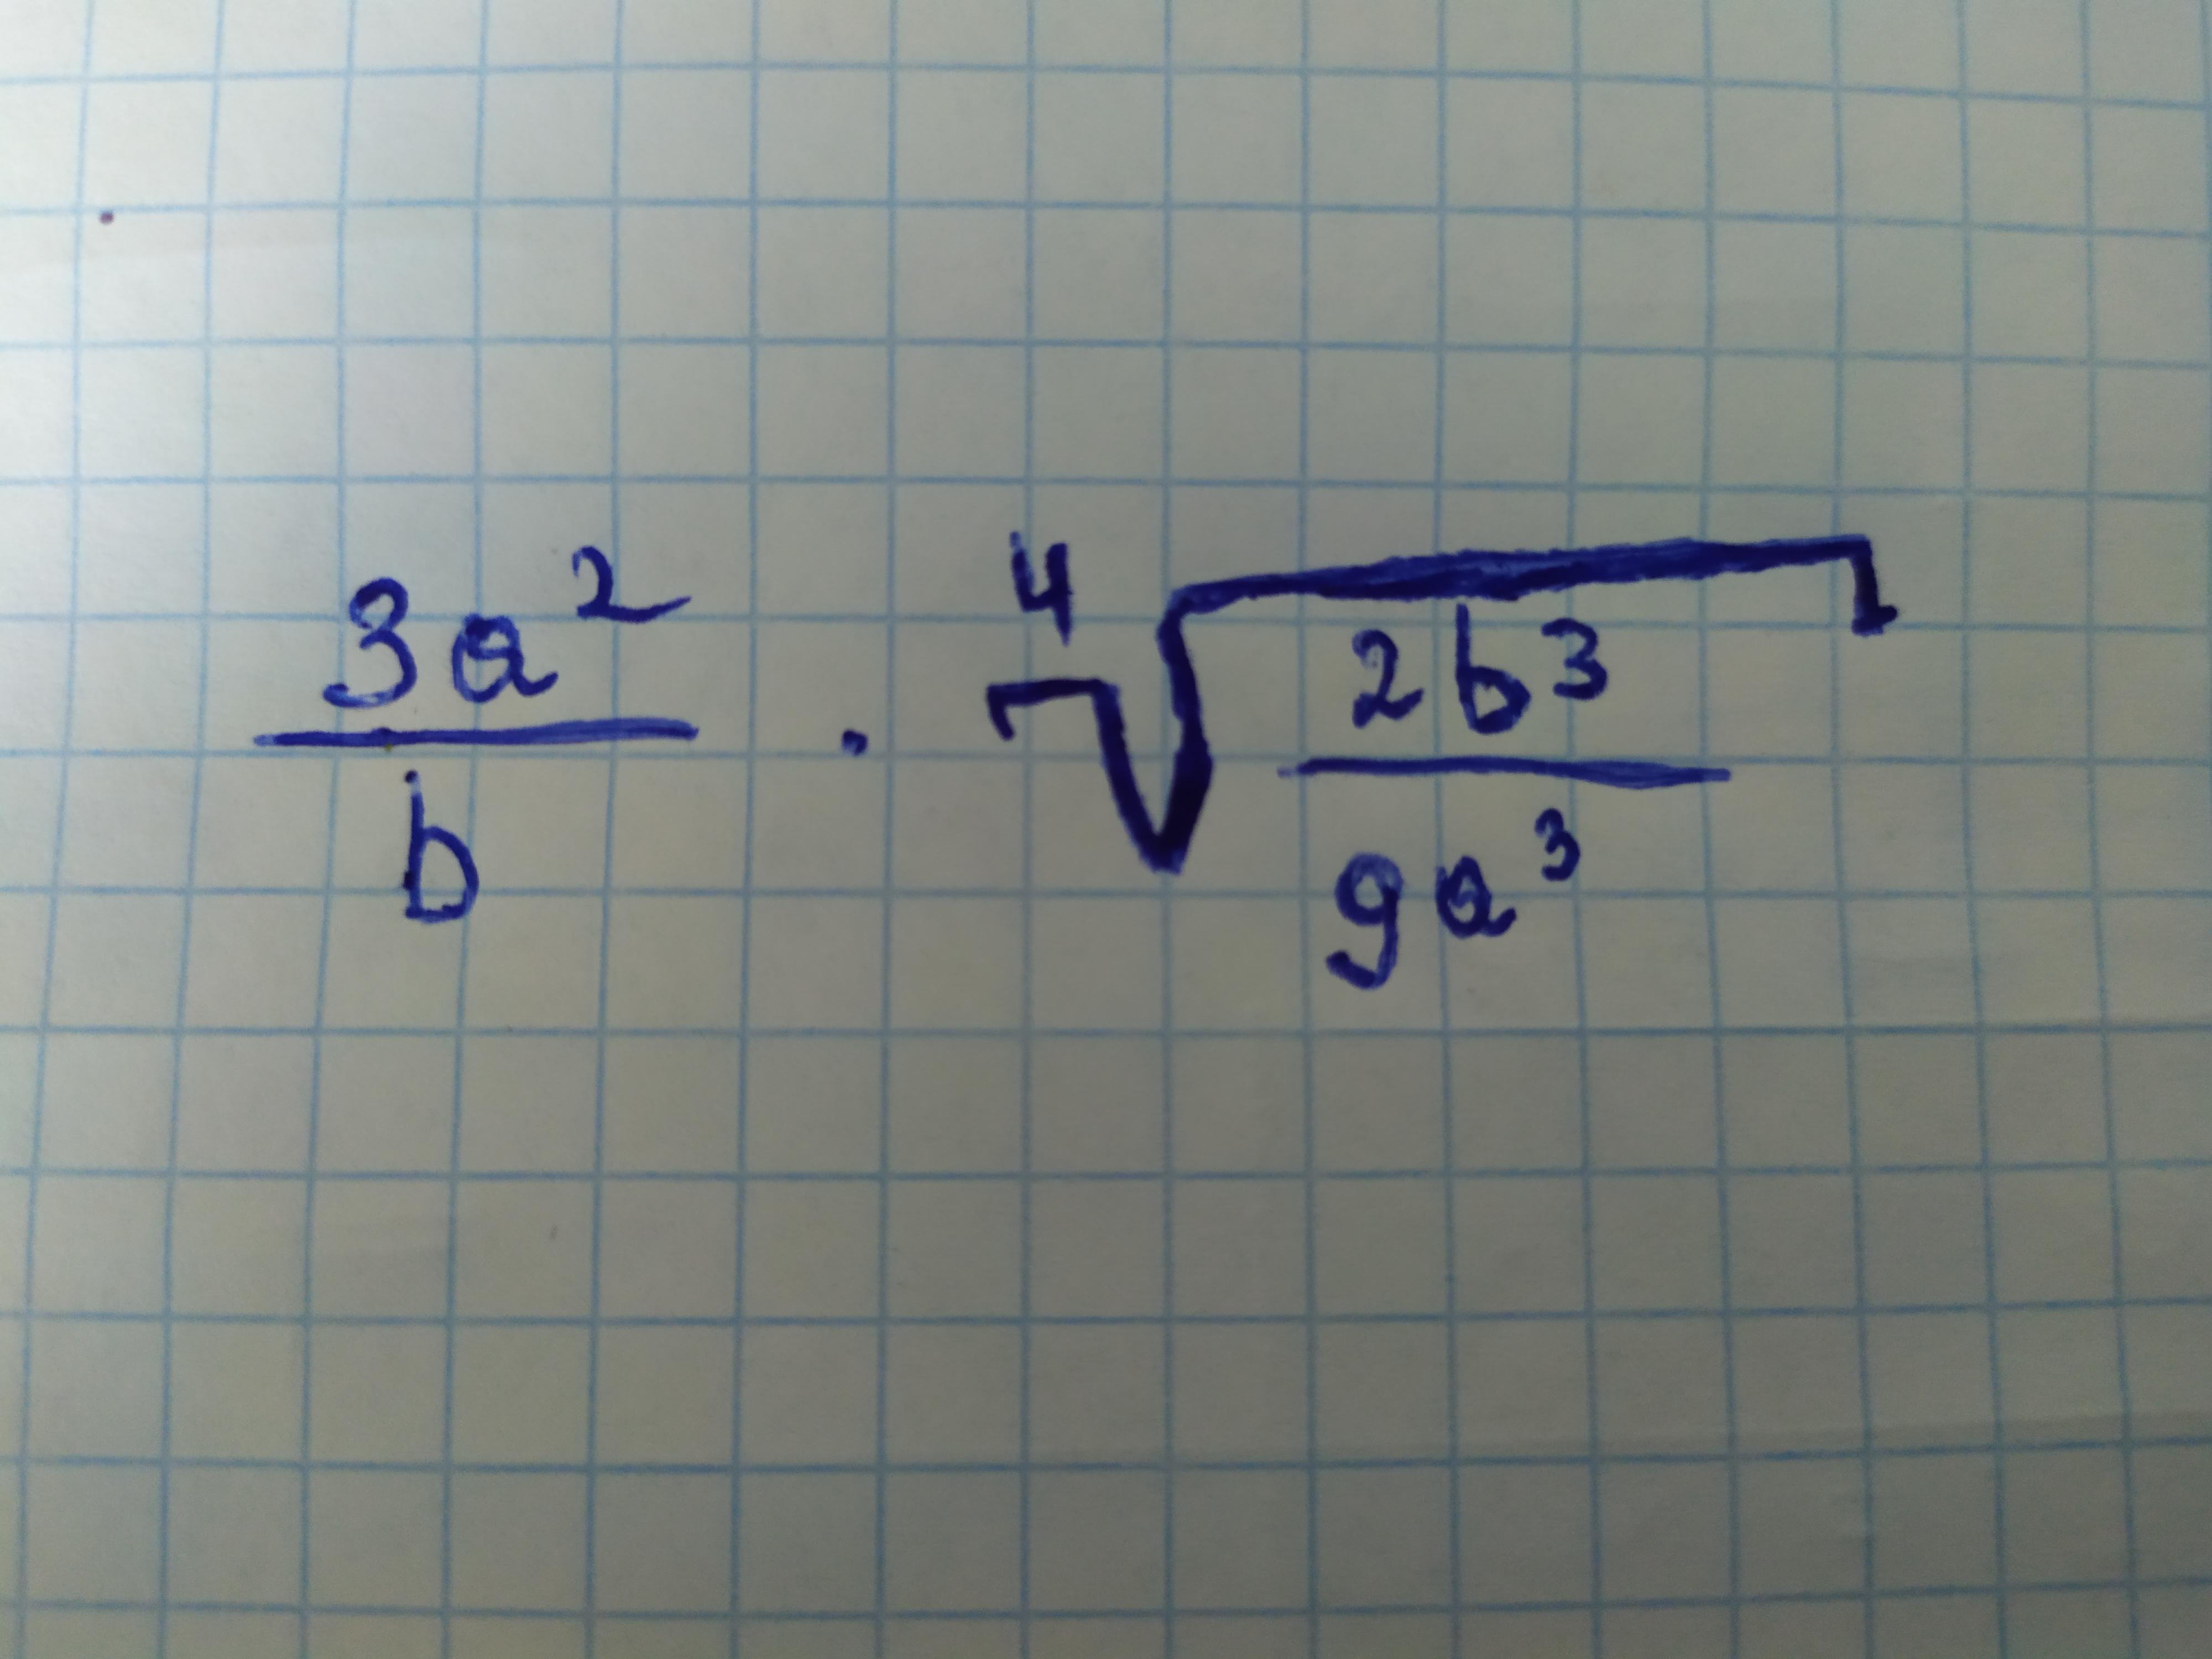 \frac{3a^2}{b} \cdot \sqrt[4]{\frac{2b^3}{9a^3}}